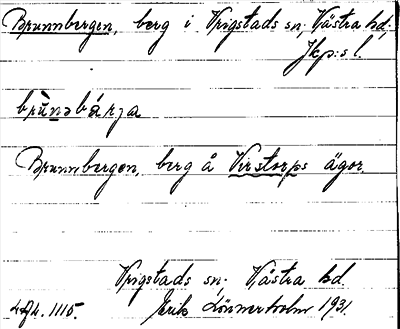 Brunnbergen, berg i Vrigstads sn, Västra hd,
Jkp:s l.
brùnəbárja
Brunnbergen, berg å Virstorps ägor.
Vrigstads sn, Västra hd.
1115. Erik Lönnerholm 1931.